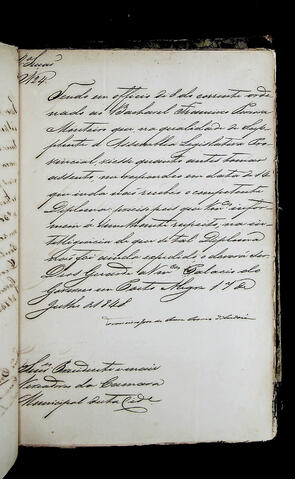 Nº 4
Tendo em officio de 6 do corrente orde
nado ao Bacharel Francisco
Monteiro que na qualidade de Sup
plente d'Assemblea Legislativa Pro
vincial viesse quanto antes tomar
assento, em data de 14
que inda não recebeo o competente
Diploma, por que
mem á semilhante respeito, na in
telligencia de que se tal Diploma
não foi ainda expedido, o deverá ser
Deos Guarde a Vmces Palacio do
Governo em Porto Alegre 17 de
Julho de 1848
Senres Presidente e mais
Vereadores da Camara
Municipal desta Cide